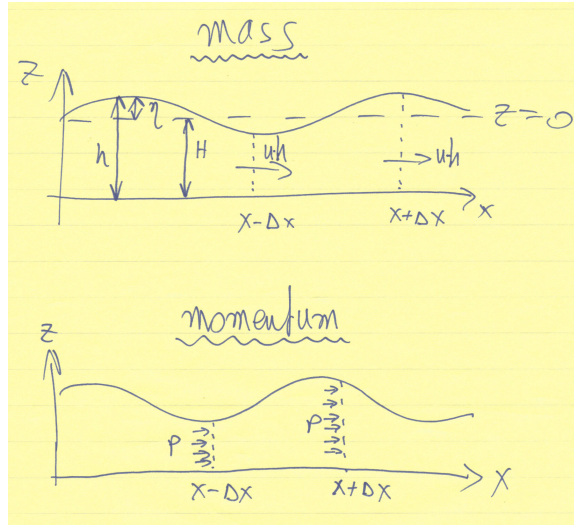 mass
z
η
z=0
h
H
u·h
u·h
x-Δx
x+Δx
x
momentum
z
P
P
x-Δx
x+Δx
x